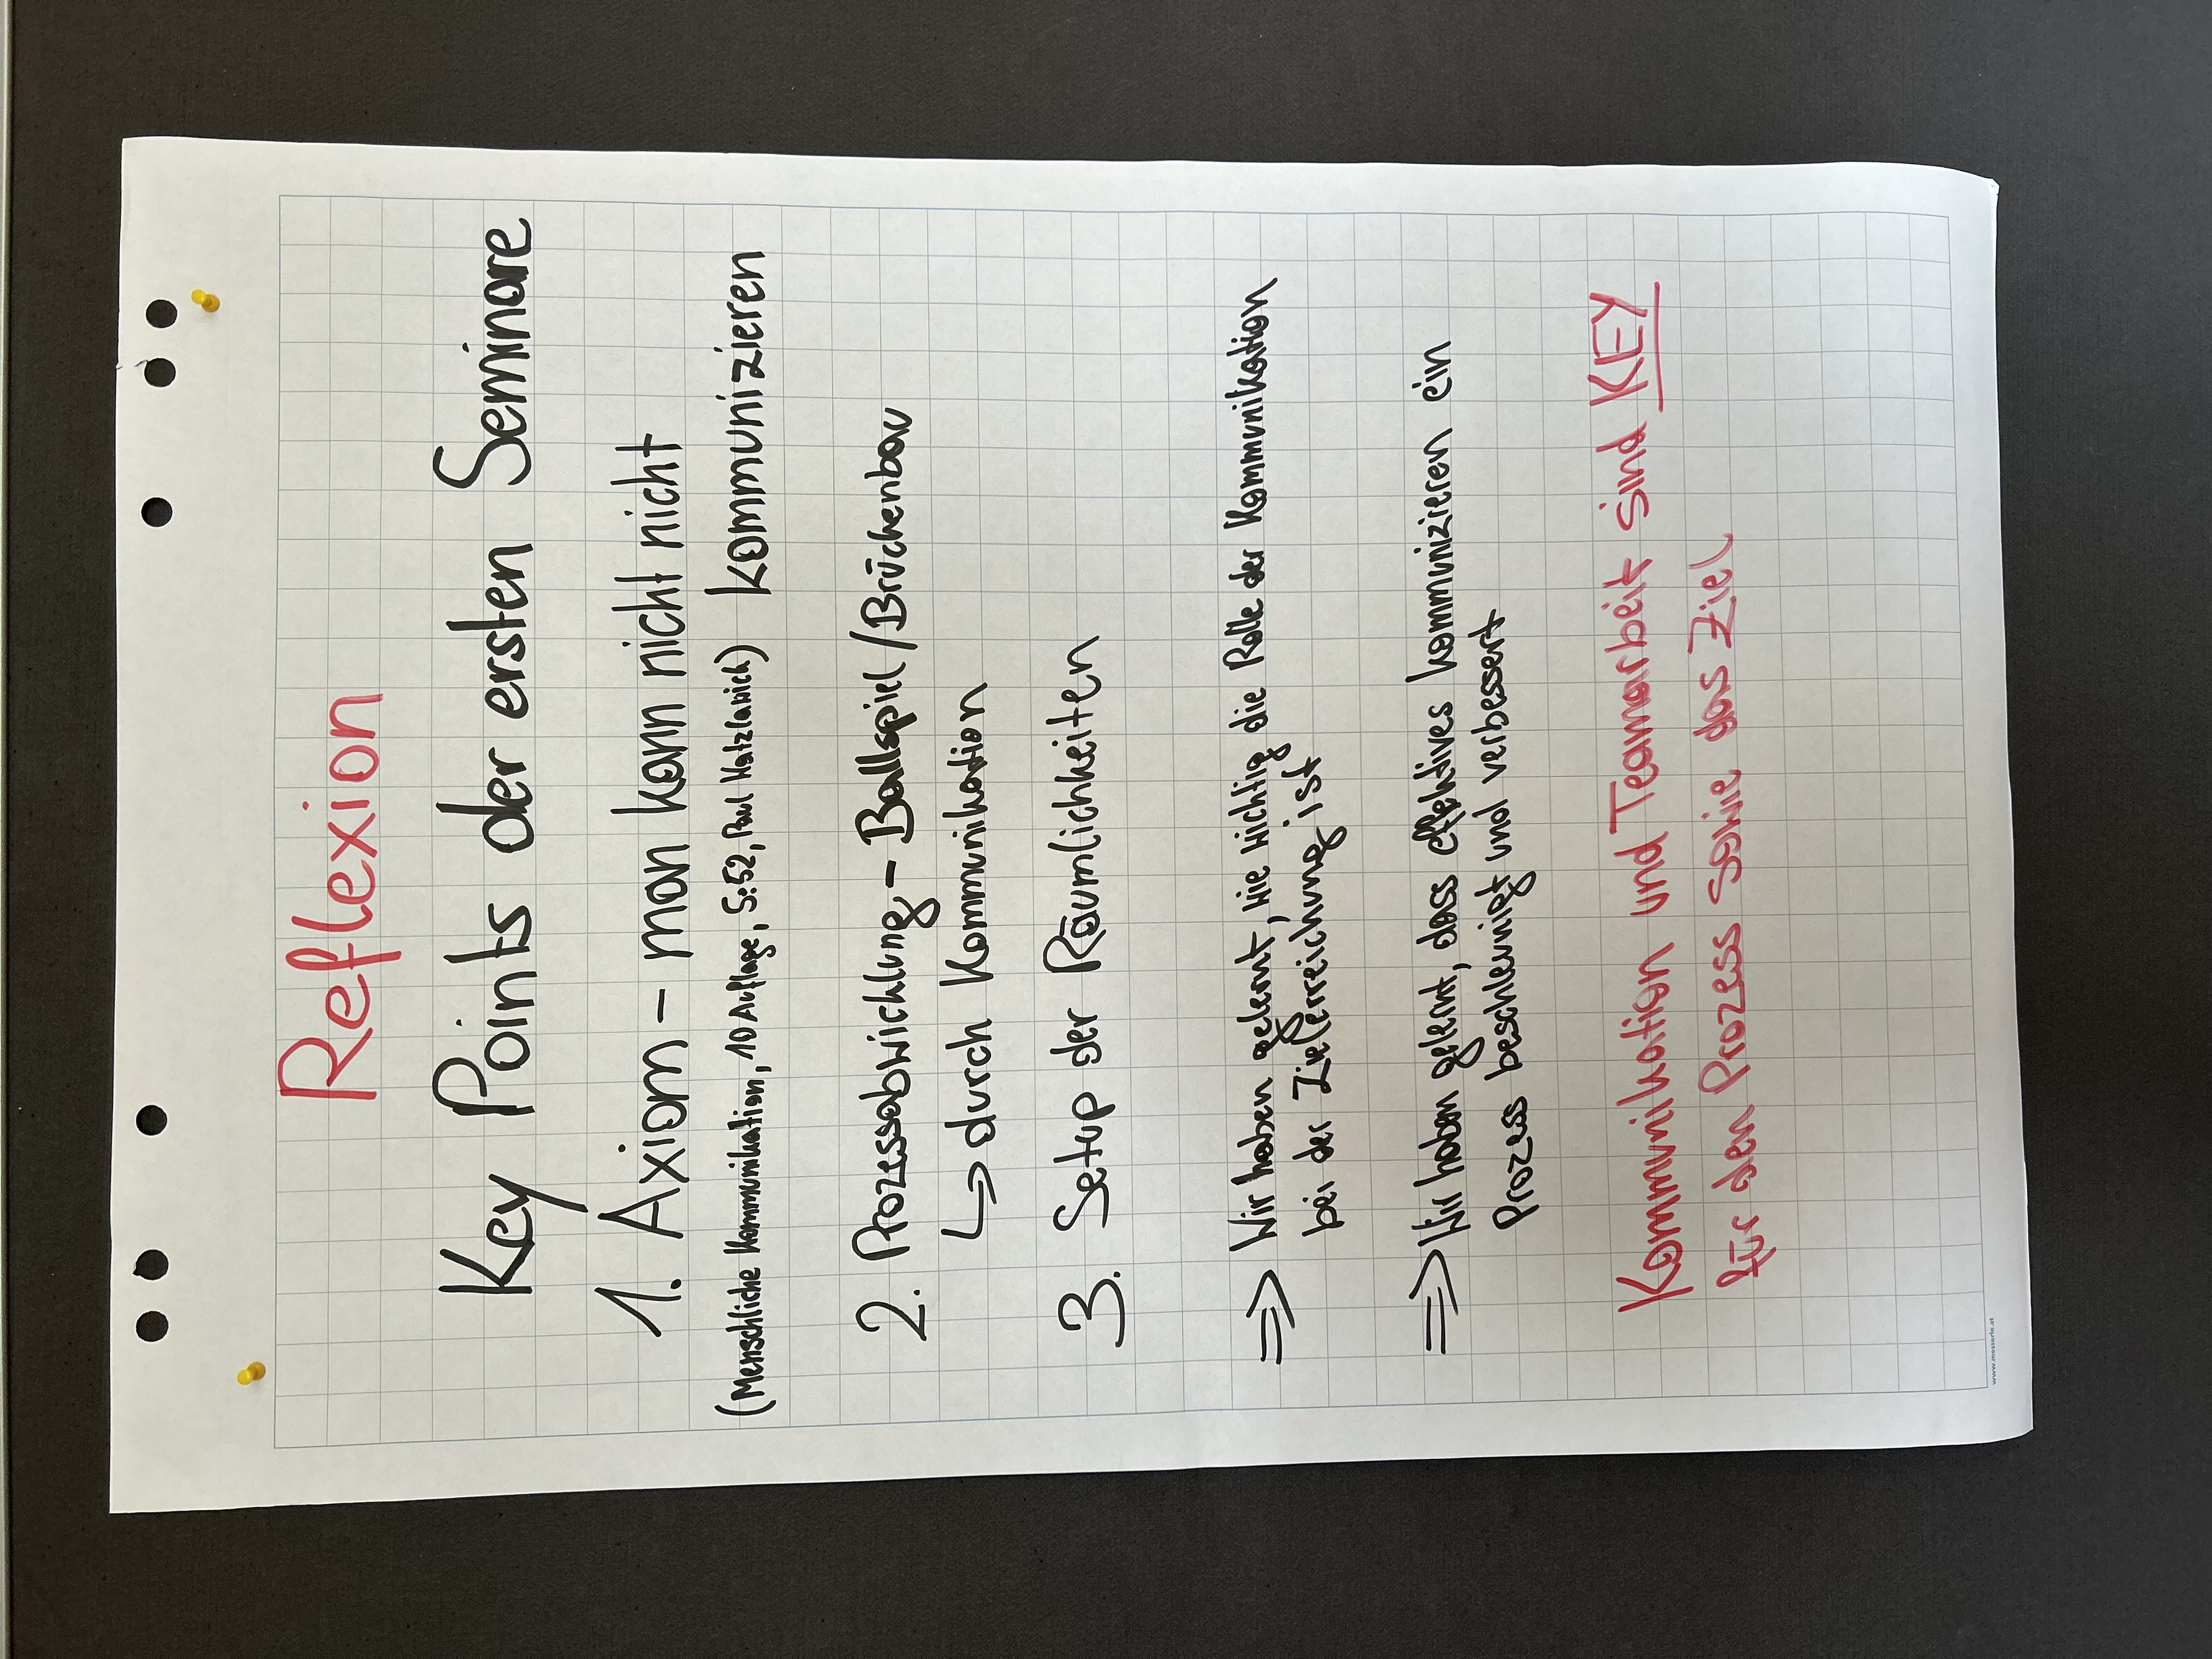 Reflexion
Key Points der ersten Seminare
1. Axiom - man kann nicht nicht
kommunizieren
(Menschliche Kommunikation, 10 Auflage, S:52, Paul Watzlawich)
2. Prozessabwicklung - Ballspiel/Brückenbau
↳ durch Kommunikation
3. Setup der Räumlichkeiten
⇒ Wir haben gelernt, wie wichtig die Rolle der Kommunikation
bei der Zielerreichung ist
⇒ Wir haben gelernt, dass effektives kommunizieren ein
Prozess beschleunigt und verbessert
Kommunikation und Teamarbeit sind KEY
für den Prozess sowie das Ziel
www.messerle.at